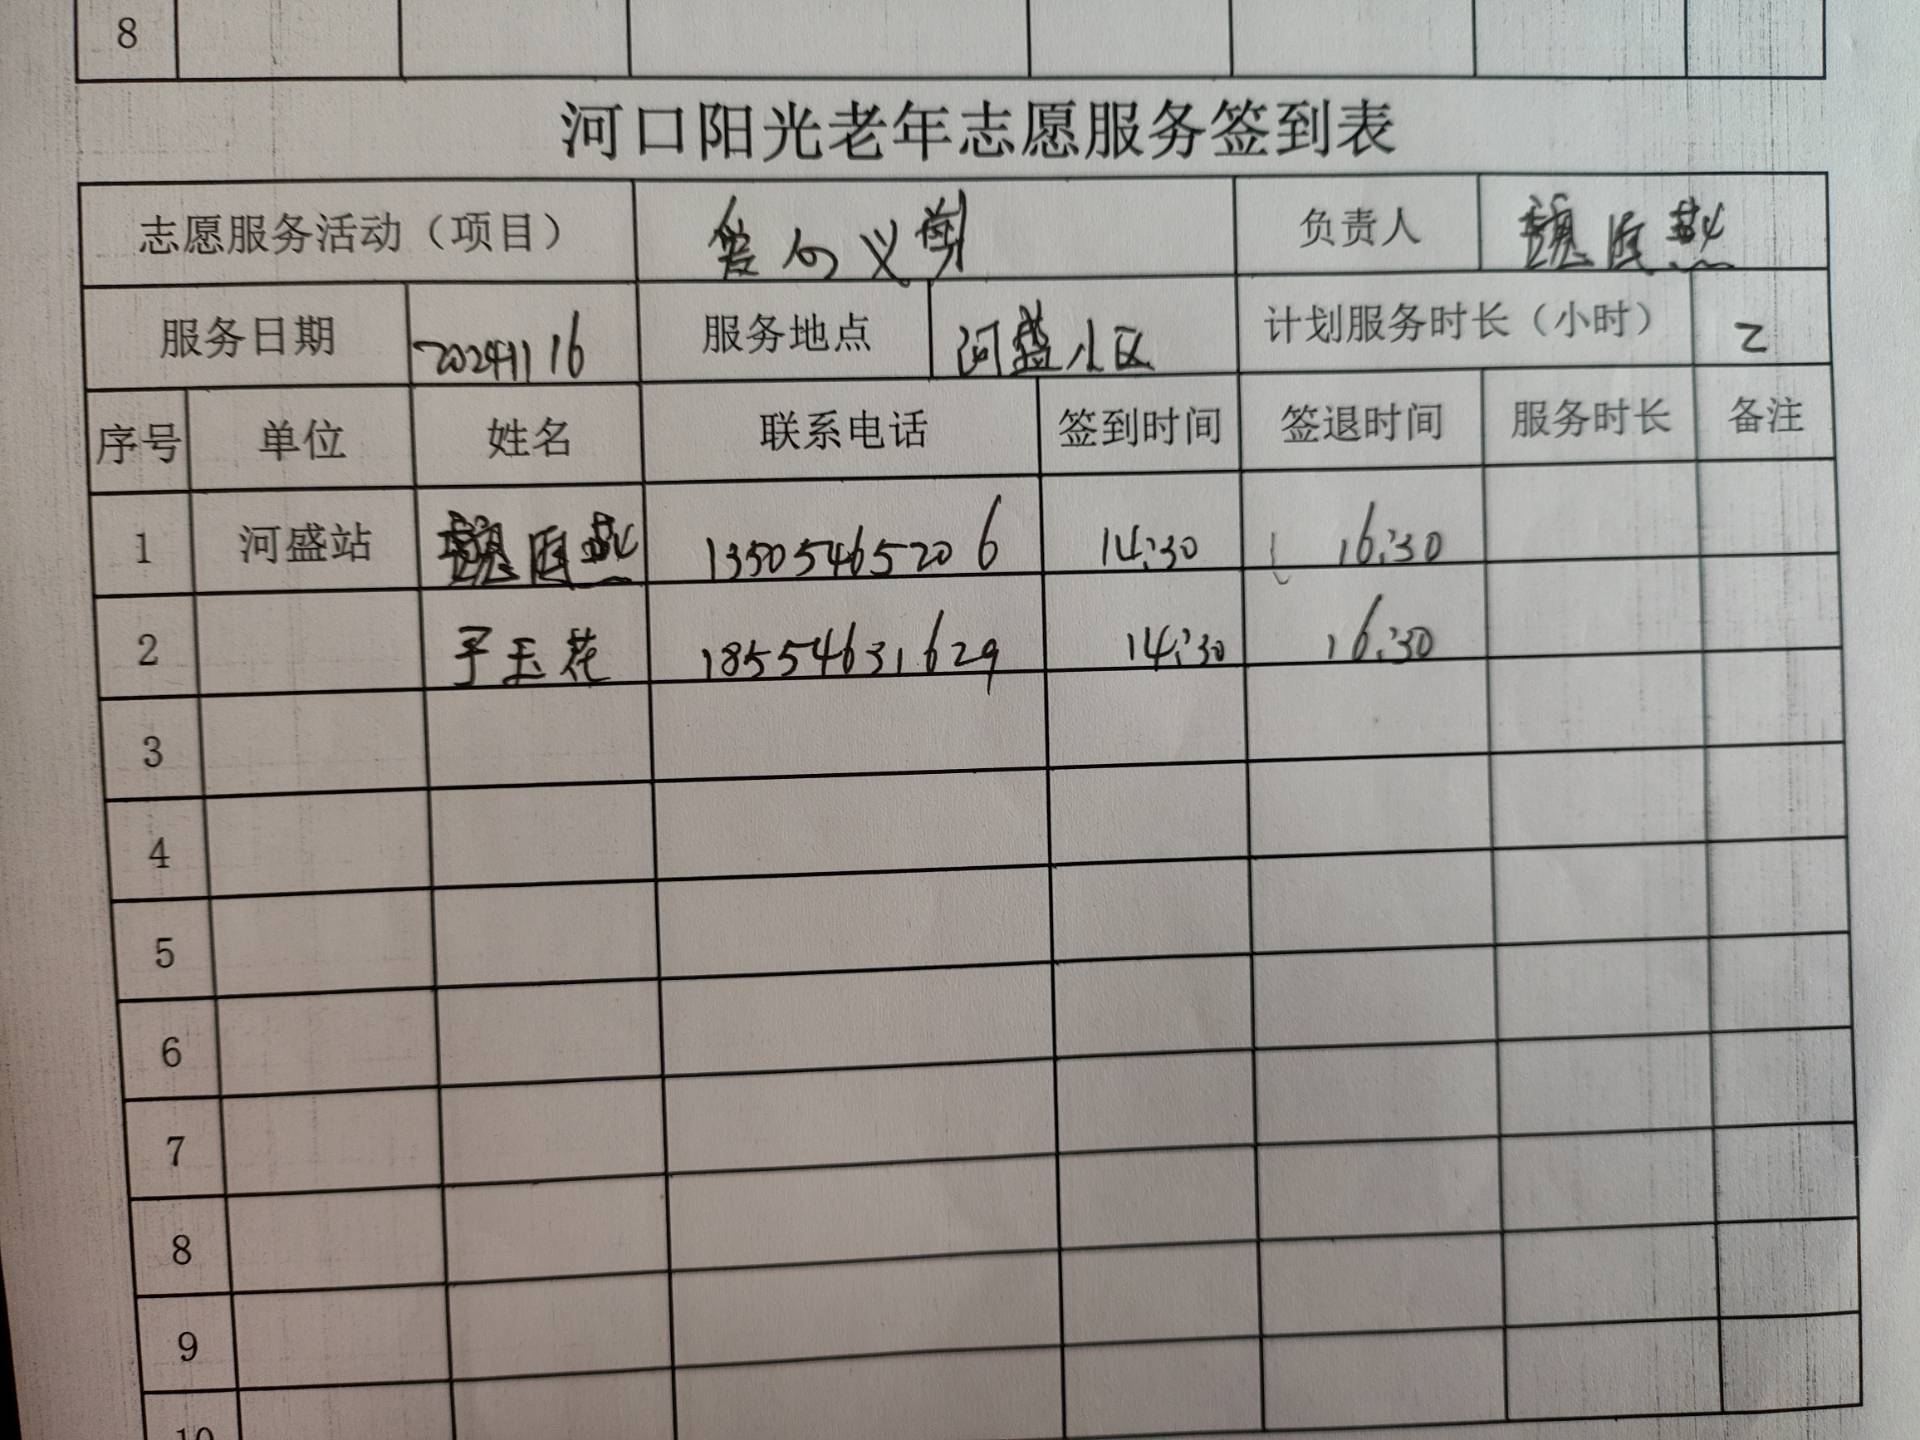 8
河口阳光老年志愿服务签到表
志愿服务活动（项目） 爱心义剪 负责人 魏
服务日期 20241116 服务地点 河盛小区 计划服务时长（小时） 2
序号 单位 姓名 联系电话 签到时间 签退时间 服务时长 备注
1 河盛站 魏 13505465206 14:30 16:30
2 于玉花 18554631629 14:30 16:30
3
4
5
6
7
8
9
10